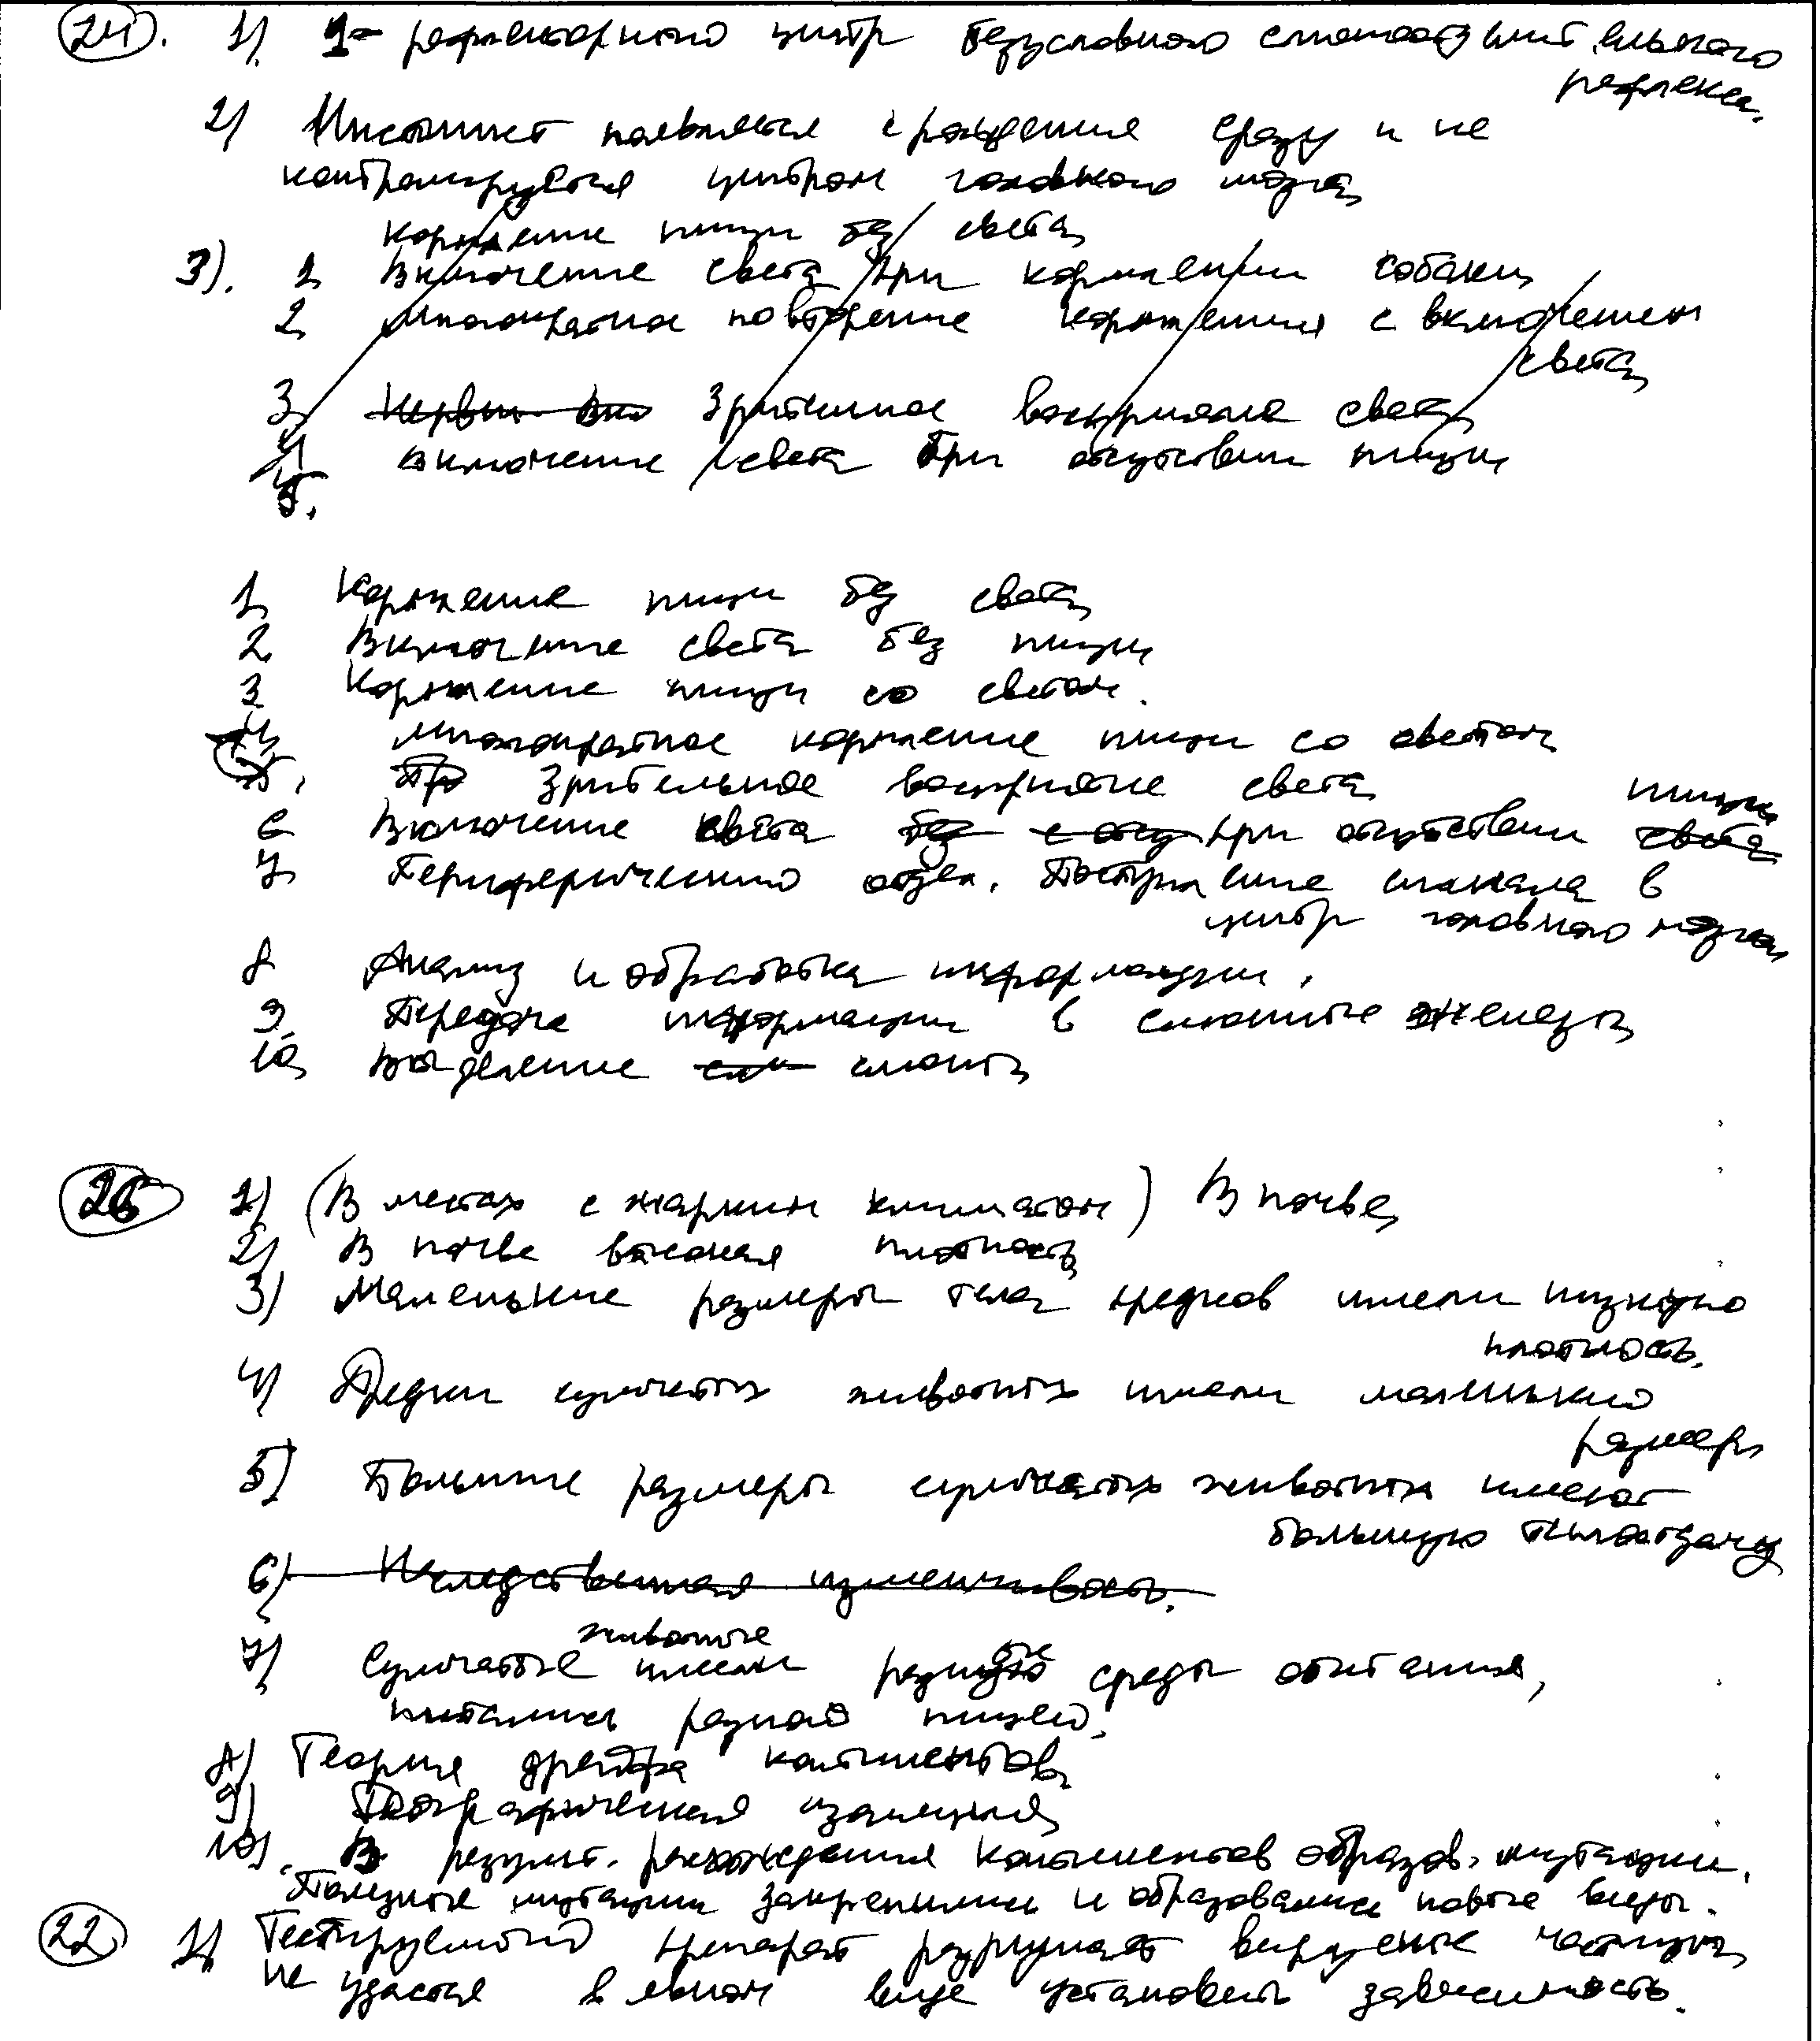 24. 1) 1 - рефлекторный центр безусловного слюноотделительного
рефлекса.
2) Инстинкт появляется с рождения сразу и не
контролируется центром головного мозга
кормление пищи без света
3). 1 Включение света при кормлении собаки
2 многократное повторение кормления с включением
света
3 Зрительное восприятие света
4 включение света при отсутствии пищи
5.
1 Кормление пищи без света
2 Включение света без пищи
3 Кормление пищи со светом.
4 многократное кормление пищи со светом
5. Зрительное восприятие света
6 Включение света при отсутствии пищи
7 Периферический отдел. Поступление сигнала в
центр головного мозга
8 Анализ и обработка информации.
9. Передача информации в слюнные железы
10 Выделение слюны
26 1) (В местах с жарким климатом) В почве
2) В почве высокая плотность
3) Маленькие размеры тела предков имели низкую
плотность.
4) Предки сумчатых животных имели маленький
размер
5) Большие размеры сумчатых животных имеют
большую теплоотдачу
6) Наследственная изменчивость.
7) Сумчатые животные имели разные среды обитания,
питались разной пищей.
8) Теория дрейфа континентов
9) Географическая изоляция
10) В результ. расхождения континентов образов. мутации.
Полезные мутации закрепились и образовались новые виды.
22 1) Тестируемый препарат разрушает вирусные частицы
не удастся в явном виде установить зависимость.